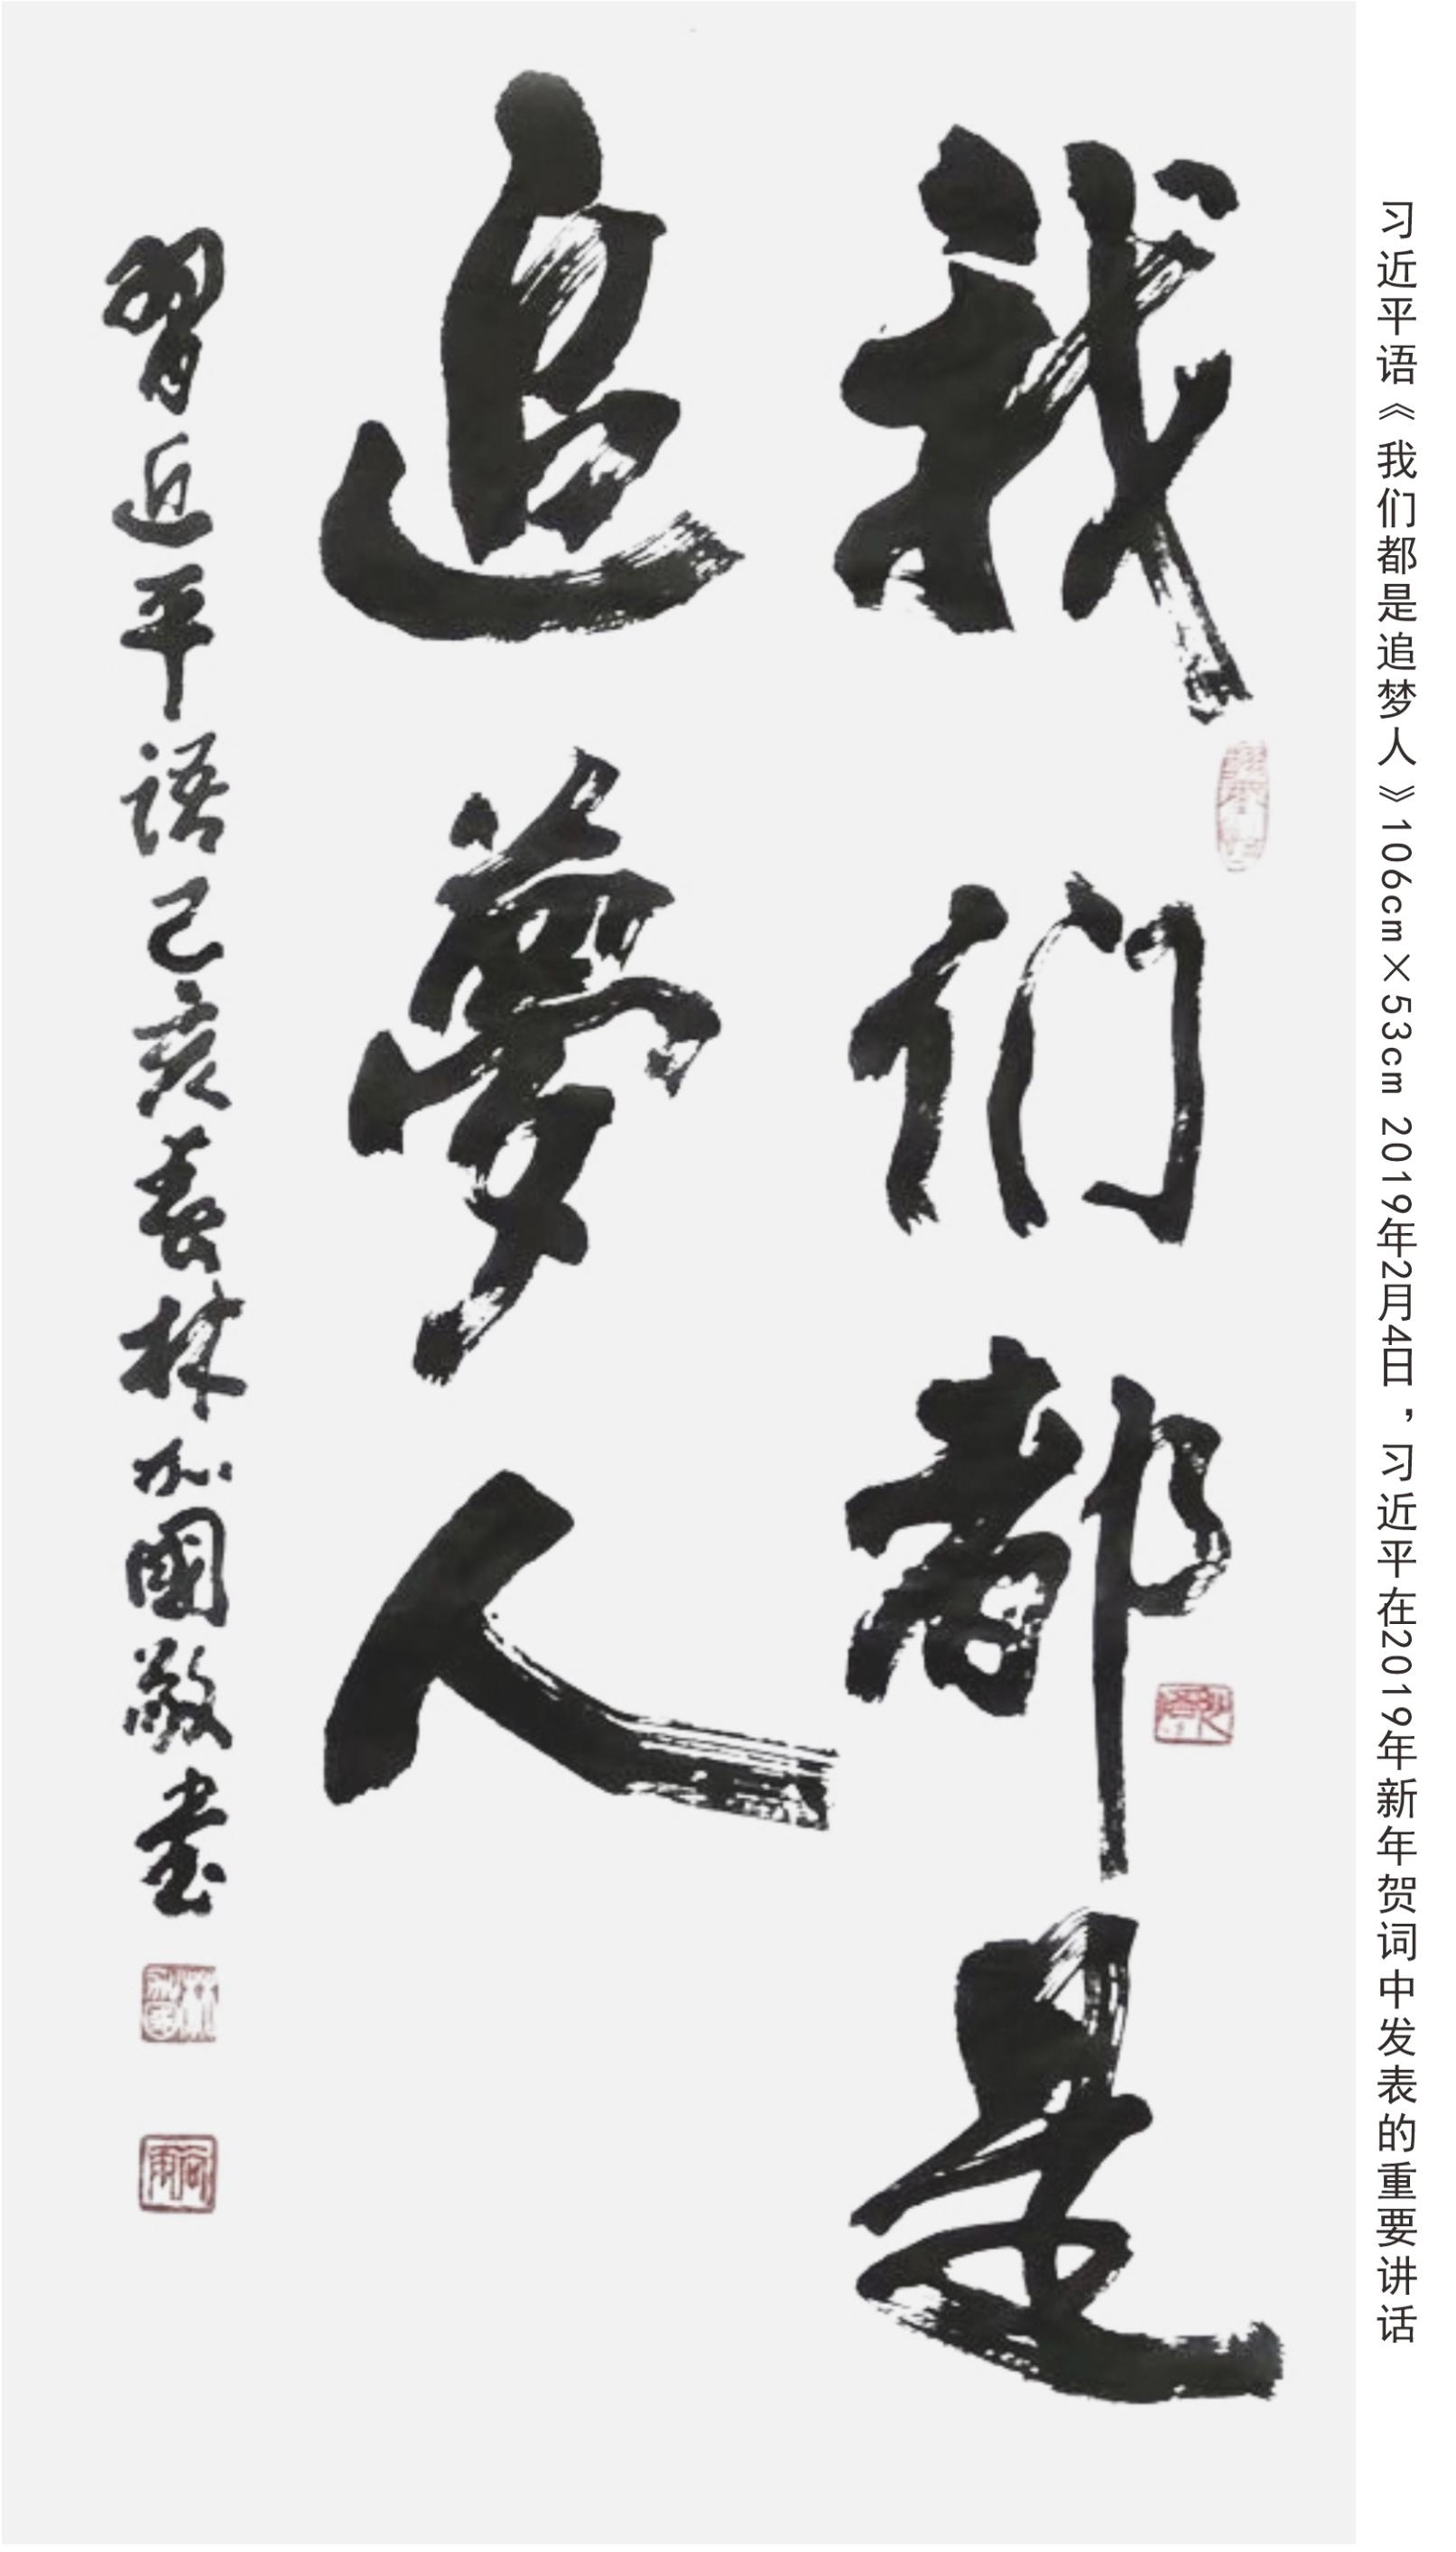 习近平语《我们都是追梦人》106cm×53cm 2019年2月4日，习近平在2019年新年贺词中发表的重要讲话
我们都是
追夢人
習近平語己亥春林加國敬書